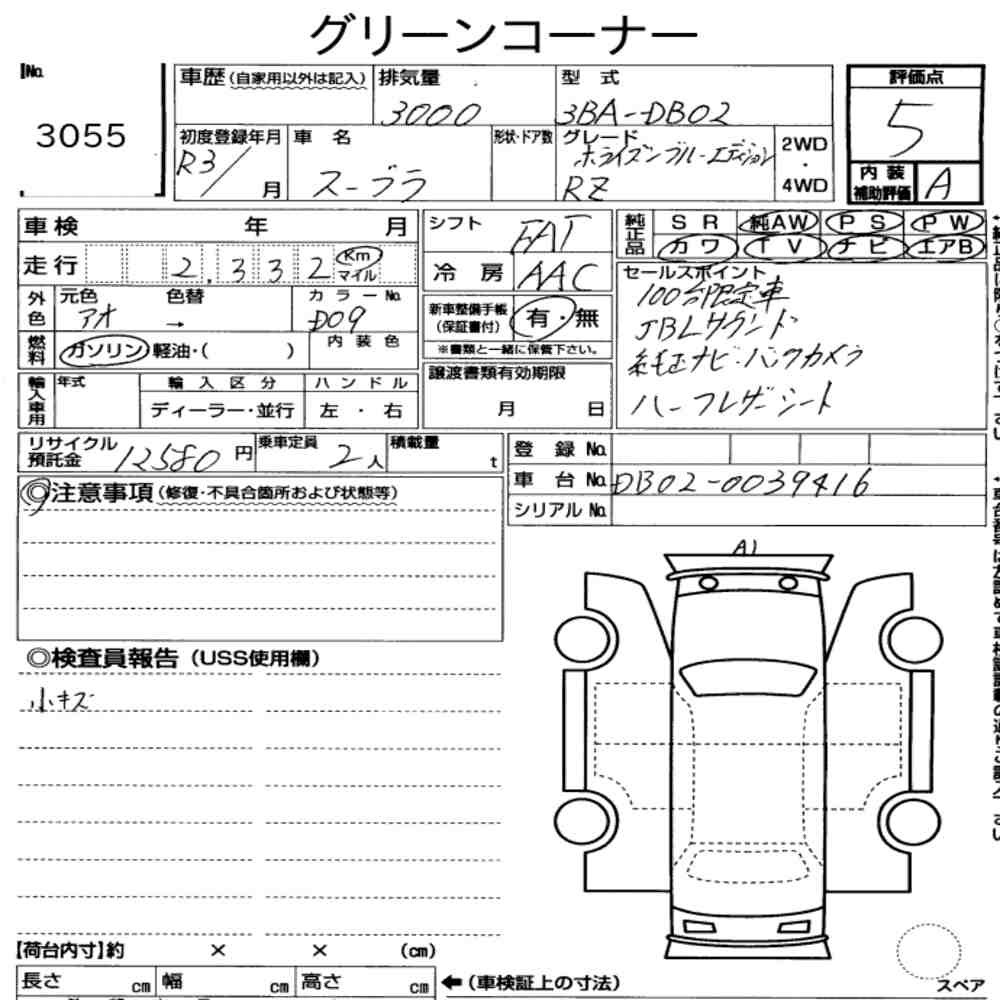 グリーンコーナー
No.
3055
車歴(自家用以外は記入)
排気量
3000
型 式
3BA-DB02
評価点
5
初度登録年月
R3/ 月
車 名
スープラ
形状・ドア数
グレード
ホライズンブルーエディション
RZ
2WD
・
4WD
内 装
補助評価
A
車検 年 月
走行 2,332 Km マイル
外色 元色 色替 カラーNo.
アオ → D09
燃料 ガソリン 軽油・( ) 内 装 色
輸入車用 年式 輸 入 区 分 ハ ン ド ル
ディーラー・並行 左 ・ 右
シフト FAT
冷 房 AAC
新車整備手帳
(保証書付) 有・無
※書類と一緒に保管下さい。
譲渡書類有効期限
月 日
純正品 S R 純AW P S P W
カワ T V ナビ エアB
セールスポイント
100台限定車
JBLサウンド
純正ナビ・バックカメラ
ハーフレザーシート
リサイクル
預託金 12580 円
乗車定員 2 人
積載量 t
登 録 No.
車 台 No. DB02-0039416
シリアル No.
◎注意事項(修復・不具合箇所および状態等)
A1
◎検査員報告(USS使用欄)
小キズ
【荷台内寸】約 × × (cm)
長さ cm 幅 cm 高さ cm
←(車検証上の寸法)
スペア